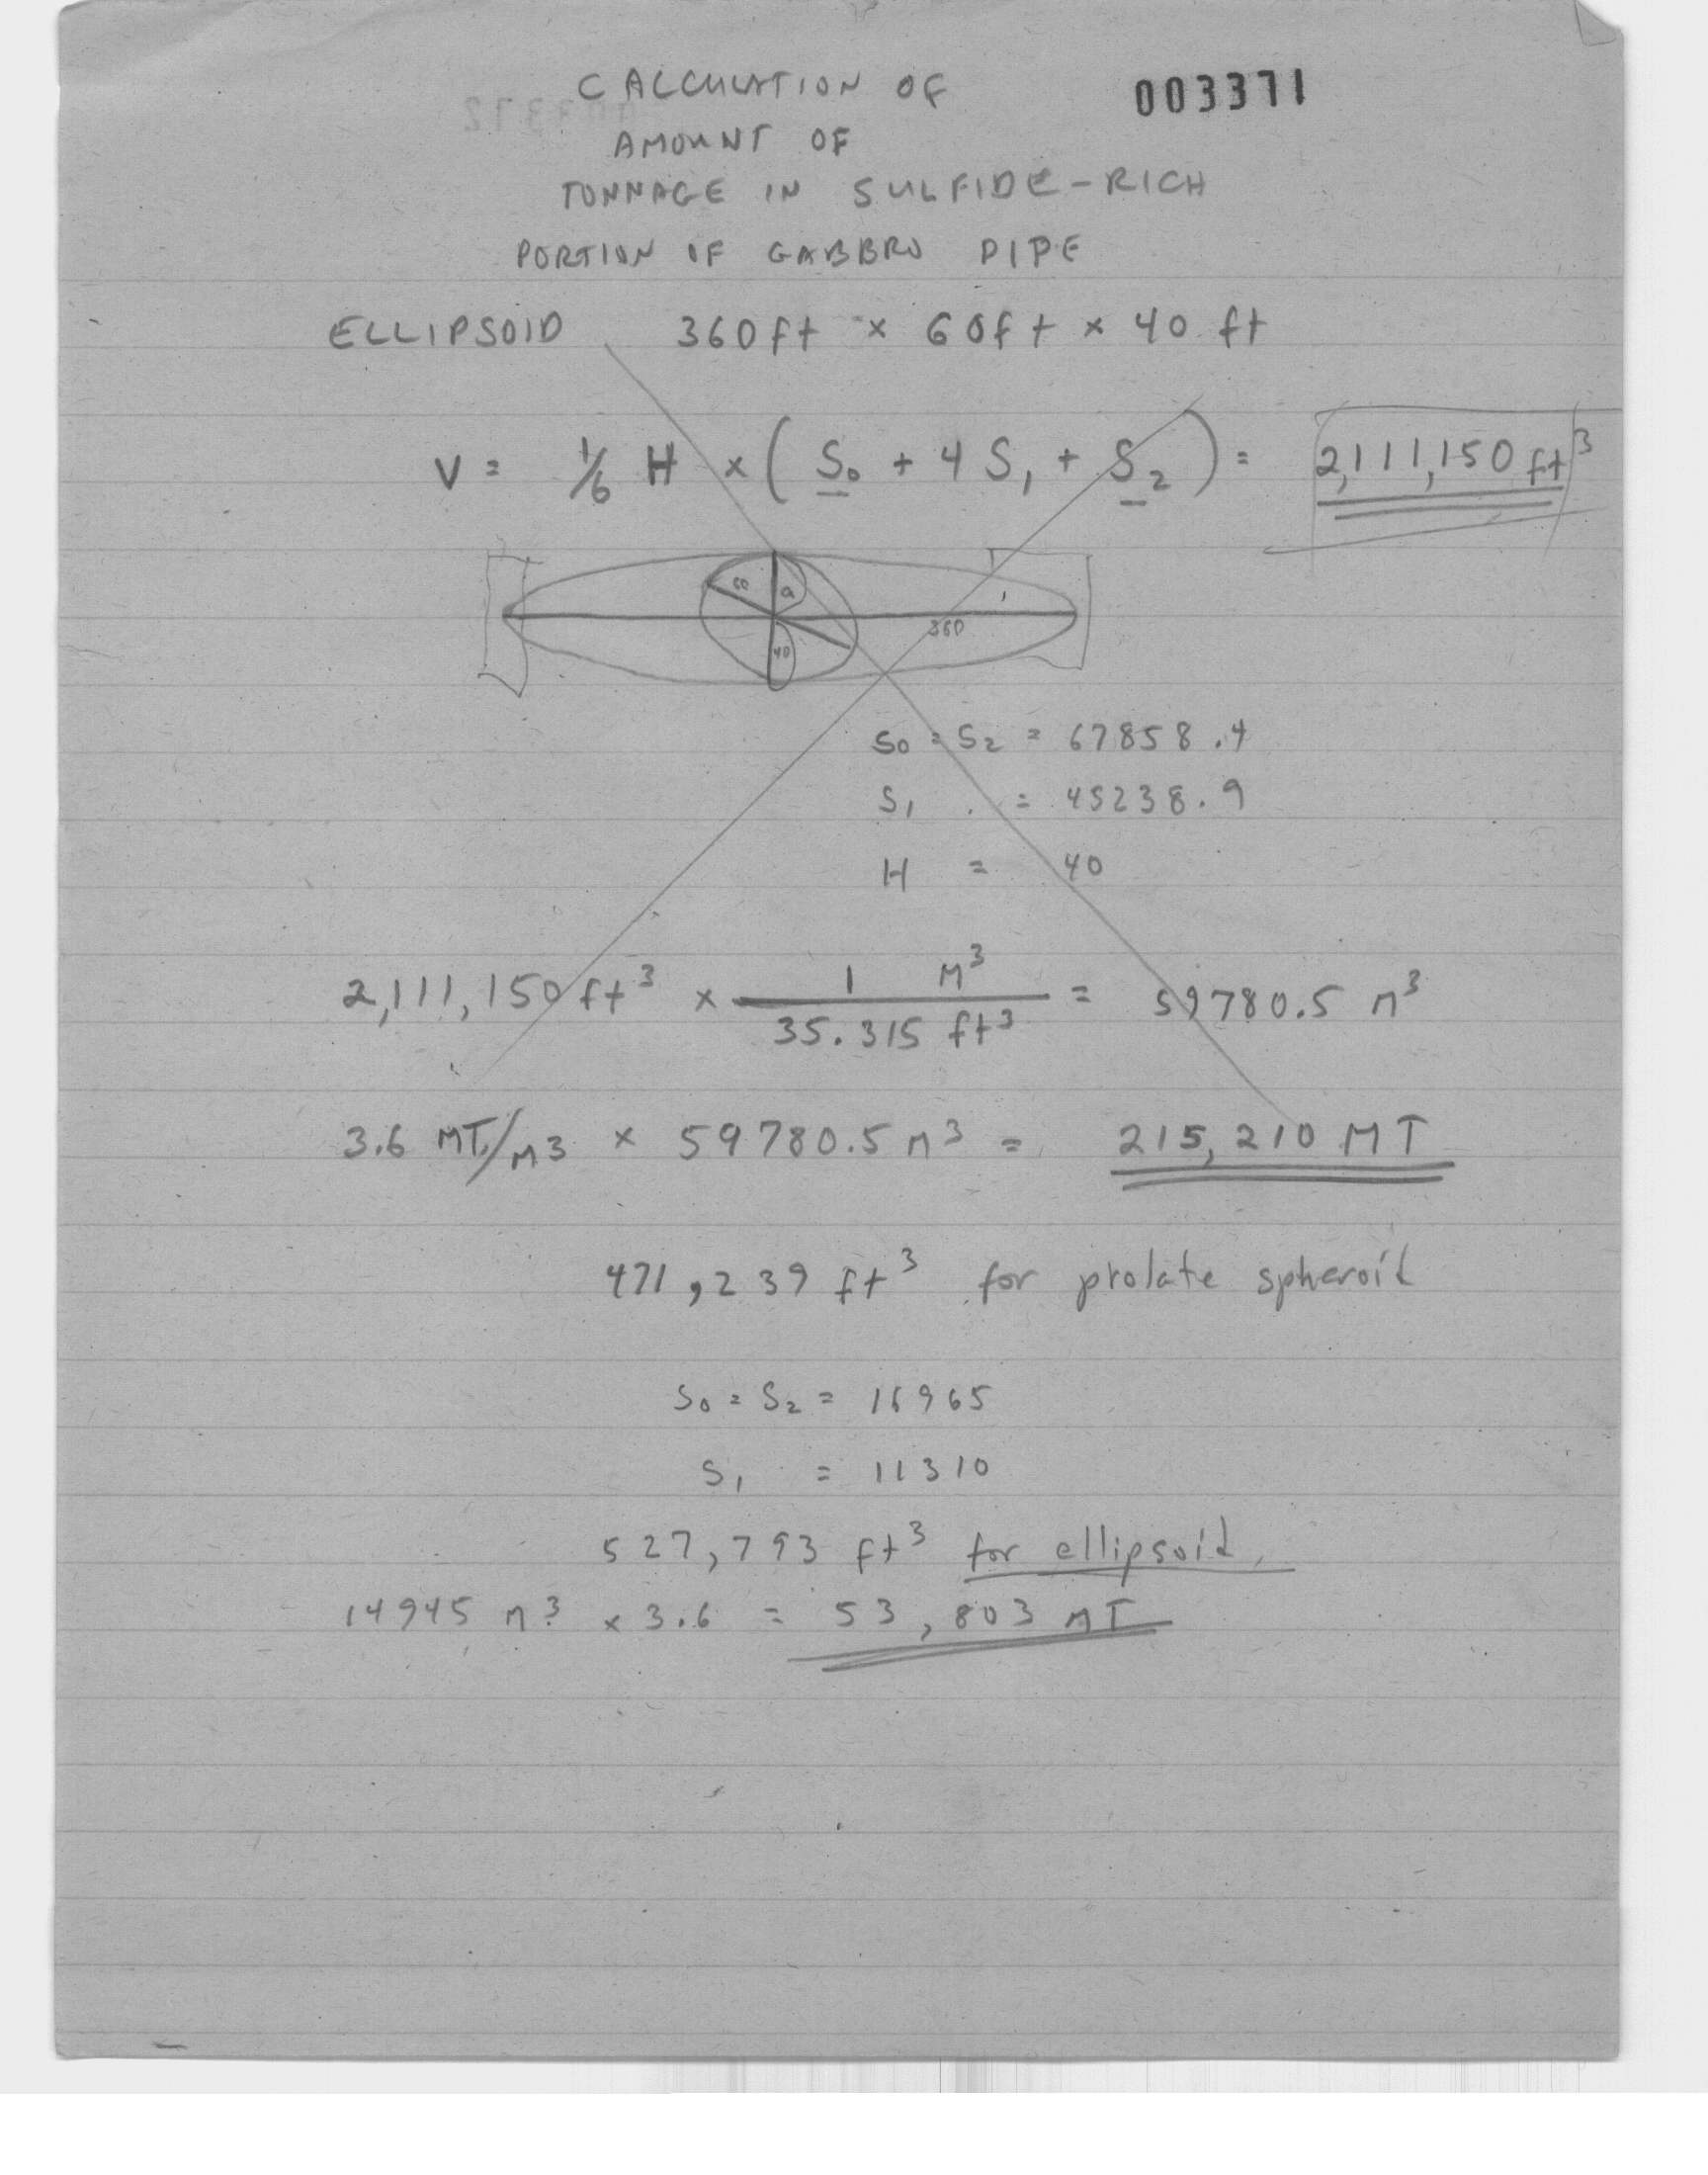 CALCULATION OF 003371
AMOUNT OF
TONNAGE IN SULFIDE-RICH
PORTION OF GABBRO PIPE
ELLIPSOID 360ft × 60ft × 40 ft
V = 1/6 H × ( S0 + 4 S1 + S2 ) = 2,111,150 ft³
60 a
360
40
S0 = S2 = 67858.4
S1 = 45238.9
H = 40
2,111,150 ft³ × 1 M³ / 35.315 ft³ = 59780.5 M³
3.6 MT/M3 × 59780.5 M³ = 215,210 MT
471,239 ft³ for prolate spheroid
S0 = S2 = 16965
S1 = 11310
527,793 ft³ for ellipsoid
14945 M³ × 3.6 = 53,803 MT